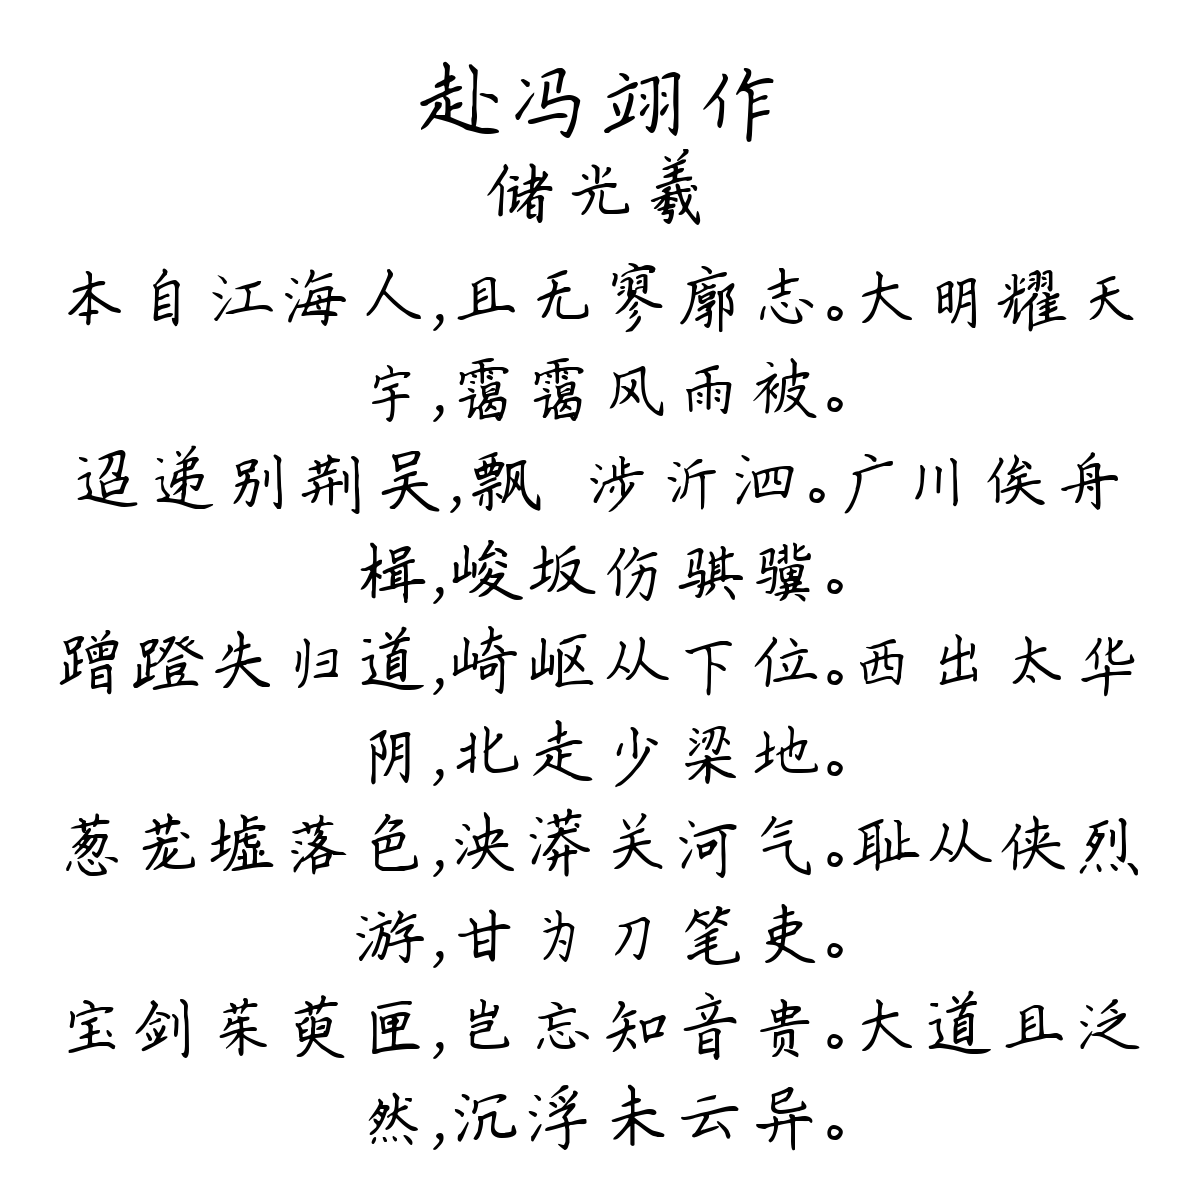 赴冯翊作
储光羲
本自江海人,且无寥廓志。大明耀天
宇,霭霭风雨被。
迢递别荆吴,飘 涉沂泗。广川俟舟
楫,峻坂伤骐骥。
蹭蹬失归道,崎岖从下位。西出太华
阴,北走少梁地。
葱茏墟落色,泱漭关河气。耻从侠烈
游,甘为刀笔吏。
宝剑茱萸匣,岂忘知音贵。大道且泛
然,沉浮未云异。